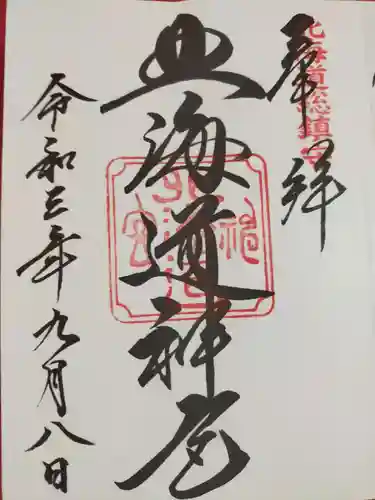 奉拝
北海道総鎮守
北海道神宮
令和三年九月八日